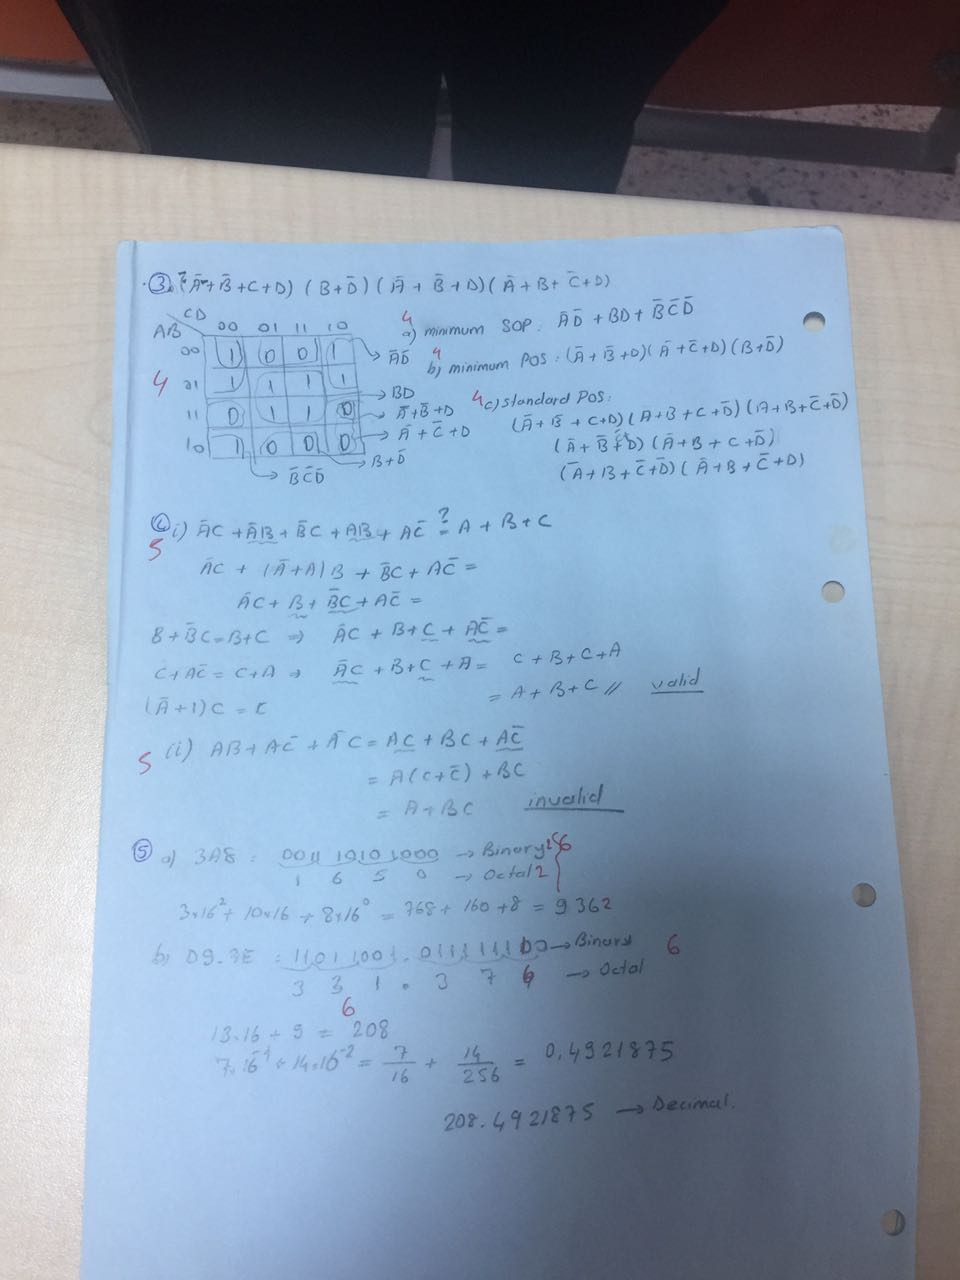 3. (Ā+B̄+C+D) (B+D̄) (Ā+B̄+D)(Ā+B+C̄+D)
CD
AB 00 01 11 10
00 1 0 0 1 → ĀD̄
01 1 1 1 1 → BD
11 0 1 1 0 → Ā+B̄+D
10 1 0 0 0 → Ā+C̄+D
→ B̄C̄D̄ B+D̄
4
4
a) minimum SOP: ĀD̄+BD+B̄C̄D̄
4
b) minimum POS: (Ā+B̄+D)(Ā+C̄+D)(B+D̄)
4 c) standard POS:
(Ā+B̄+C+D)(A+B+C+D̄)(A+B+C̄+D̄)
(Ā+B̄+C̄+D)(Ā+B+C+D̄)
(Ā+B+C̄+D̄)(Ā+B+C̄+D)
i) ĀC+ĀB+B̄C+AB+AC̄ ?= A+B+C
5
ĀC+(Ā+A)B+B̄C+AC̄=
ĀC+B+B̄C+AC̄=
B+B̄C=B+C ⇒ ĀC+B+C+AC̄=
C+AC̄=C+A ⇒ ĀC+B+C+A= C+B+C+A
= A+B+C // valid
(Ā+1)C = C
5 (i) AB+AC̄+ĀC=AC+BC+AC̄
= A(C+C̄)+BC
= A+BC invalid
5 a) 3A8 = 0011 1010 1000 → Binary 2 6
1 6 5 0 → Octal 2
3×16²+10×16+8×16⁰=768+160+8=9362
b) D9.7E = 1101 1001.0111111100 → Binary 6
3 3 1 . 3 7 6 → Octal
6
13.16+9=208
7.16⁻¹+14.16⁻²= 7/16 + 14/256 = 0,4921875
208.4921875 → Decimal.